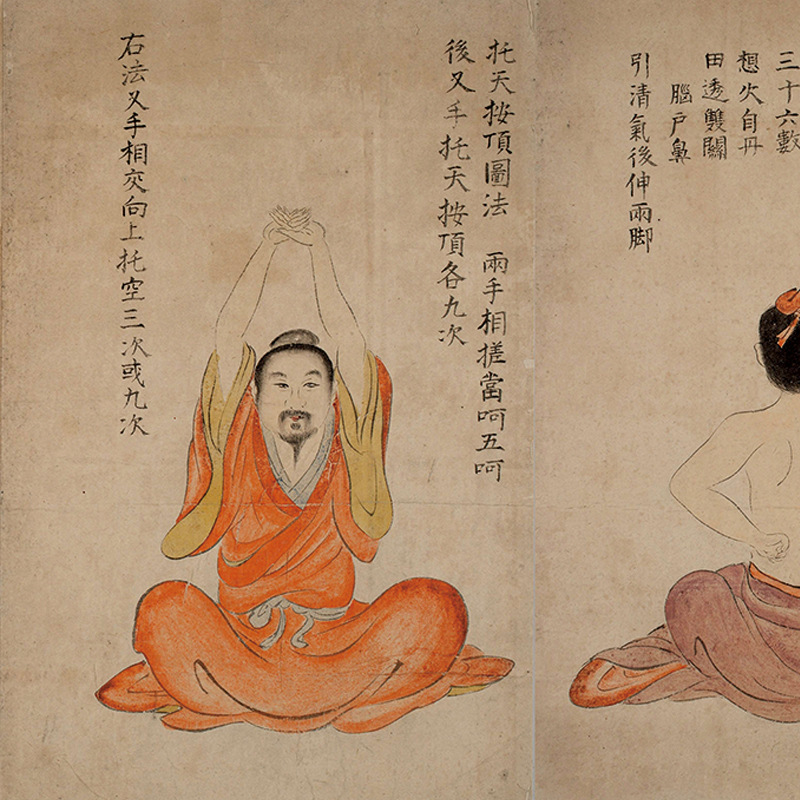 三十六數
想火自丹
田透雙關
腦戶鼻
引清氣後伸兩脚
托天按頂圖法　兩手相搓當呵五呵
後叉手托天按頂各九次
右法叉手相交向上托空三次或九次